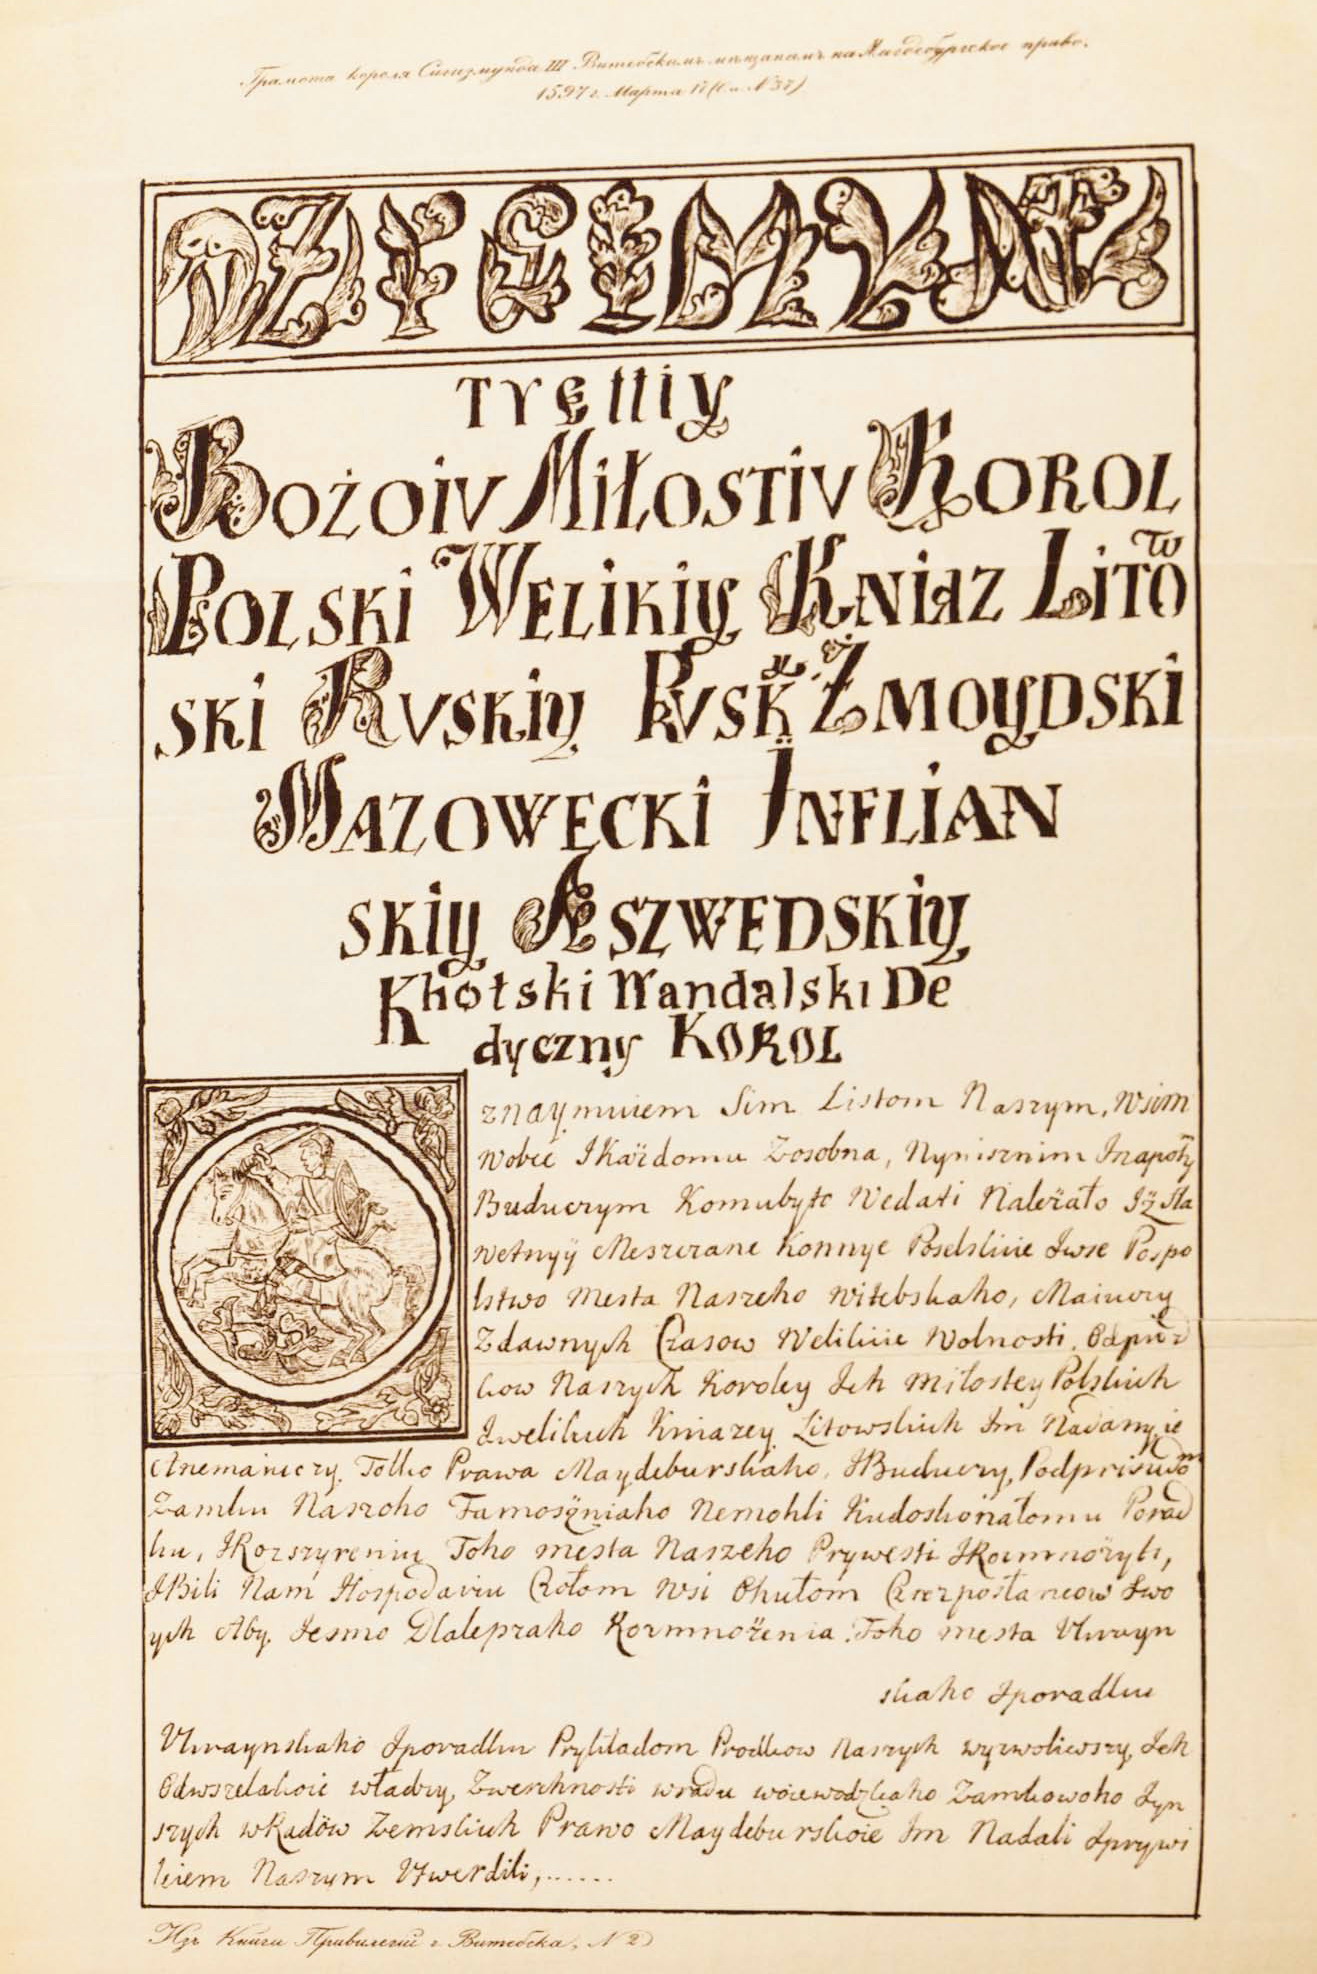 Грамота короля Сигизмунда III Витебскимъ мѣщанамъ на Магдебургское право.
1597 г. Марта 17 (къ № 37)
ZIGIMVNT
Tretiy
Bożoiv Miłostiv Korol
Polski Welikiy Kniaz Litow
ski Rvskiy Prvsk Żmoydski
Mazowecki Inflian
skiy A Szwedskiy
Khotski Wandalski De
dyczny Korol
znaymuiem Sim Listom Naszym, Wsim
Wobec I Każdomu Zosobna, Nynisznim I napotỹ
Buduczym Komu byłc Wedati Należało Iż Sła
wetnyy Meszczane Konnye Poselskiie I wse Pospo
lstwo Mesta Naszeho Witebskaho, Maiuczy
Zdawnych Czasow Welikiie Wolnosti, Od przod
kow Naszych Koroley Ich Miłostey Polskich
I welikich Kniazey Litowskich Im Nadanyie
A nemaiuczy, Tolko Prawa Maydeburskaho, I Buduczy, Pod prisudom
Zamku Naszoho Tamosżniaho Nemohli Ku doskonałomu Porad
ku, I Rozszyreniu Toho mesta Naszeho Prywesti I Rozmnożyti,
I Bili Nam Hospodaru Czołom Wsi Ohułom Czrez posłancow Swo
ych Aby Iesmo Dla lepszaho Rozmnożenia Toho mesta Ukrayn
skaho I poradku
Ukraynskaho I poradku Prykładom Prodkow Naszych wyzwoliwszy, Ich
Od wszelakoie władzy, Zwerchnosti wradu woiewodzkaho Zamkowoho I yn
szych wRadöw Zemskich Prawo Maydeburskoie Im Nadali I prywi
leiem Naszym Utwerdili,......
Изъ Книги Привилегий г. Витебска, № 2